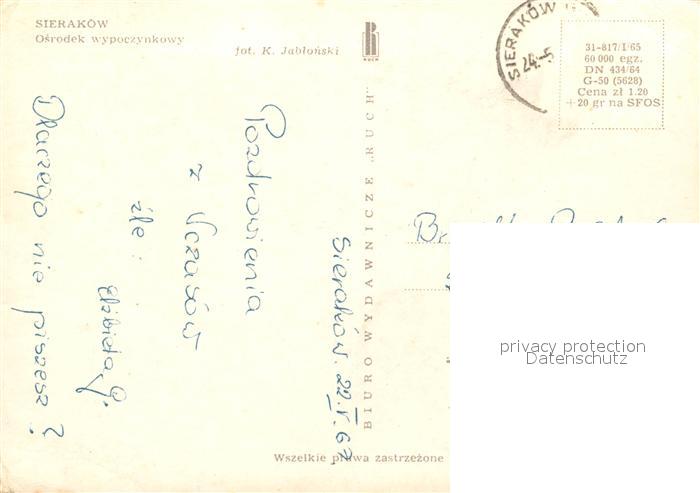 SIERAKÓW
Ośrodek wypoczynkowy
fot. K. Jabłoński
RUCH
SIERAKÓW
24.-5
31-817/I/65
60 000 egz.
DN 434/64
G-50 (5628)
Cena zł 1.20
+ 20 gr na SFOS
BIURO WYDAWNICZE „RUCH"
Sieraków. 22.V.67
Pozdrowienia
z Wczasów
śle:
Elżbieta G.
Dlaczego nie piszesz?
privacy protection
Datenschutz
Wszelkie prawa zastrzeżone